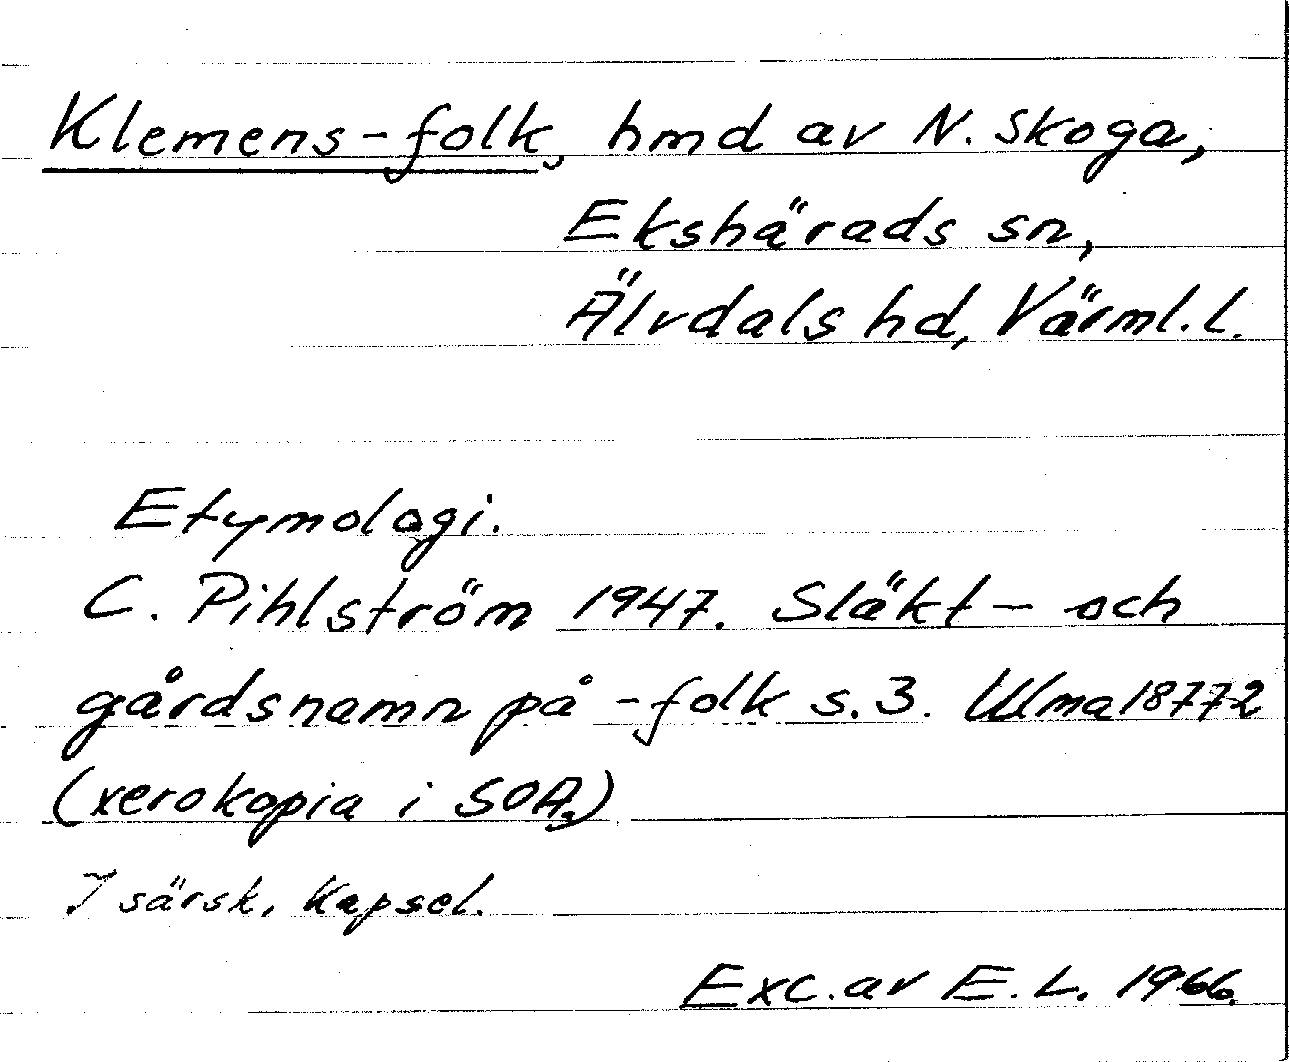 Klemens-folk, hmd av N. Skoga,
Ekshärads sn,
Älvdals hd, Värml. l.
Etymologi.
C. Pihlström 1947. Släkt- och
gårdsnamn på -folk s. 3. Ulma 18772
(xerokopia i SOA.)
I särsk. kapsel.
Exc. av E. L. 1966.